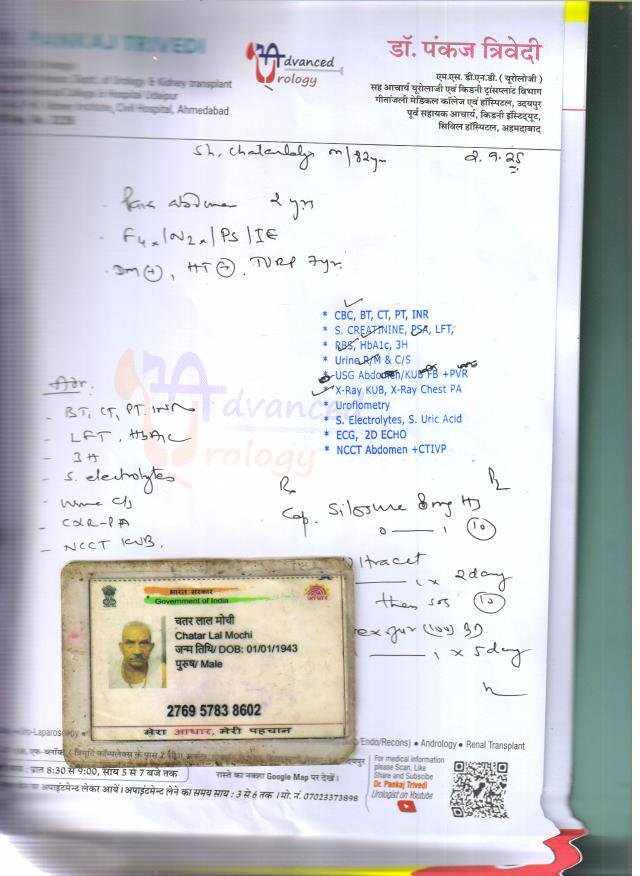 PANKAJ TRIVEDI
Dept. of Urology & Kidney transplant
& Hospital Udaipur
Civil Hospital, Ahmedabad
Advanced
Urology
डॉ. पंकज त्रिवेदी
एम.एस. डी.एन.बी. (यूरोलोजी)
सह आचार्य यूरोलाजी एवं किडनी ट्रांसप्लांट विभाग
गीतांजली मेडिकल कॉलेज एवं हॉस्पिटल, उदयपुर
पूर्व सहायक आचार्य, किडनी इंस्टिट्यूट,
सिविल हॉस्पिटल, अहमदाबाद
Sh. Chatarlalji m/82yr
2.9.25
2 yrs
F4x/N2x/PS/IE
DM+, HT+, TURP 7yr.
* CBC, BT, CT, PT, INR
* S. CREATININE, PSA, LFT,
* RBS, HbA1c, 3H
* Urine R/M & C/S
* USG Abdomen/KUB FB +PVR
* X-Ray KUB, X-Ray Chest PA
* Uroflometry
* S. Electrolytes, S. Uric Acid
* ECG, 2D ECHO
* NCCT Abdomen +CTIVP
Advanced
Urology
- BT, CT, PT, INR
- LFT, HbA1C
- 3H
- S. electrolytes
- Urine C/S
- CXR-PA
- NCCT KUB.
Rx
Cap. Silosure 8mg HS
0 — 1 (10)
Ultracet
1 x 2day
then sos (10)
(100) BD
1 x 5day
भारत सरकार
Government of India
आधार
चतर लाल मोची
Chatar Lal Mochi
जन्म तिथि/ DOB: 01/01/1943
पुरुष/ Male
2769 5783 8602
मेरा आधार, मेरी पहचान
Uro-Laparoscopy
/Endo/Recons) • Andrology • Renal Transplant
उदयपुर
: प्रात 8:30 से 9:00, साय 5 से 7 बजे तक
रास्ते का नक्शा Google Map पर देखें।
पर या अपाइंटमेन्ट लेकर आयें। अपाइंटमेन्ट लेने का समय साय : 3 से 6 तक। मो. नं. 07023373898
For medical information
please Scan, Like
Share and Subscibe
Dr. Pankaj Trivedi
Urologist on Youtube